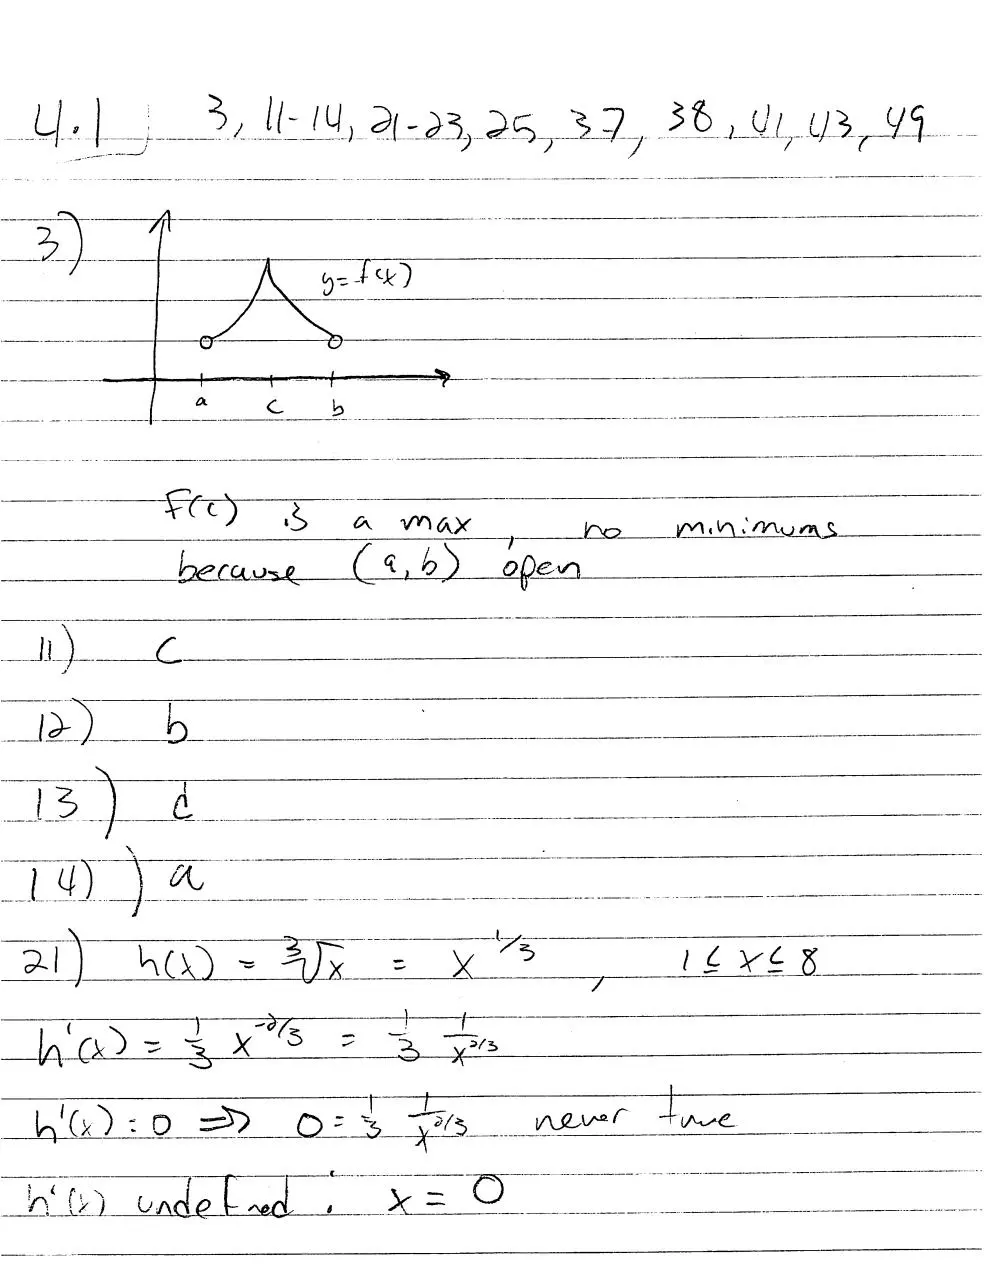 4.1 3, 11-14, 21-23, 25, 37, 38, 41, 43, 49
3)
y=f(x)
a c b
f(c) is a max, no minimums
because (a,b) open
11) c
12) b
13) d
14) ) a
21) h(x) = ∛x = x^1/3, 1 ≤ x ≤ 8
h'(x) = 1/3 x^-2/3 = 1/3 1/x^2/3
h'(x) = 0 ⇒ 0 = 1/3 1/x^2/3 never true
h'(x) undefined : x = 0